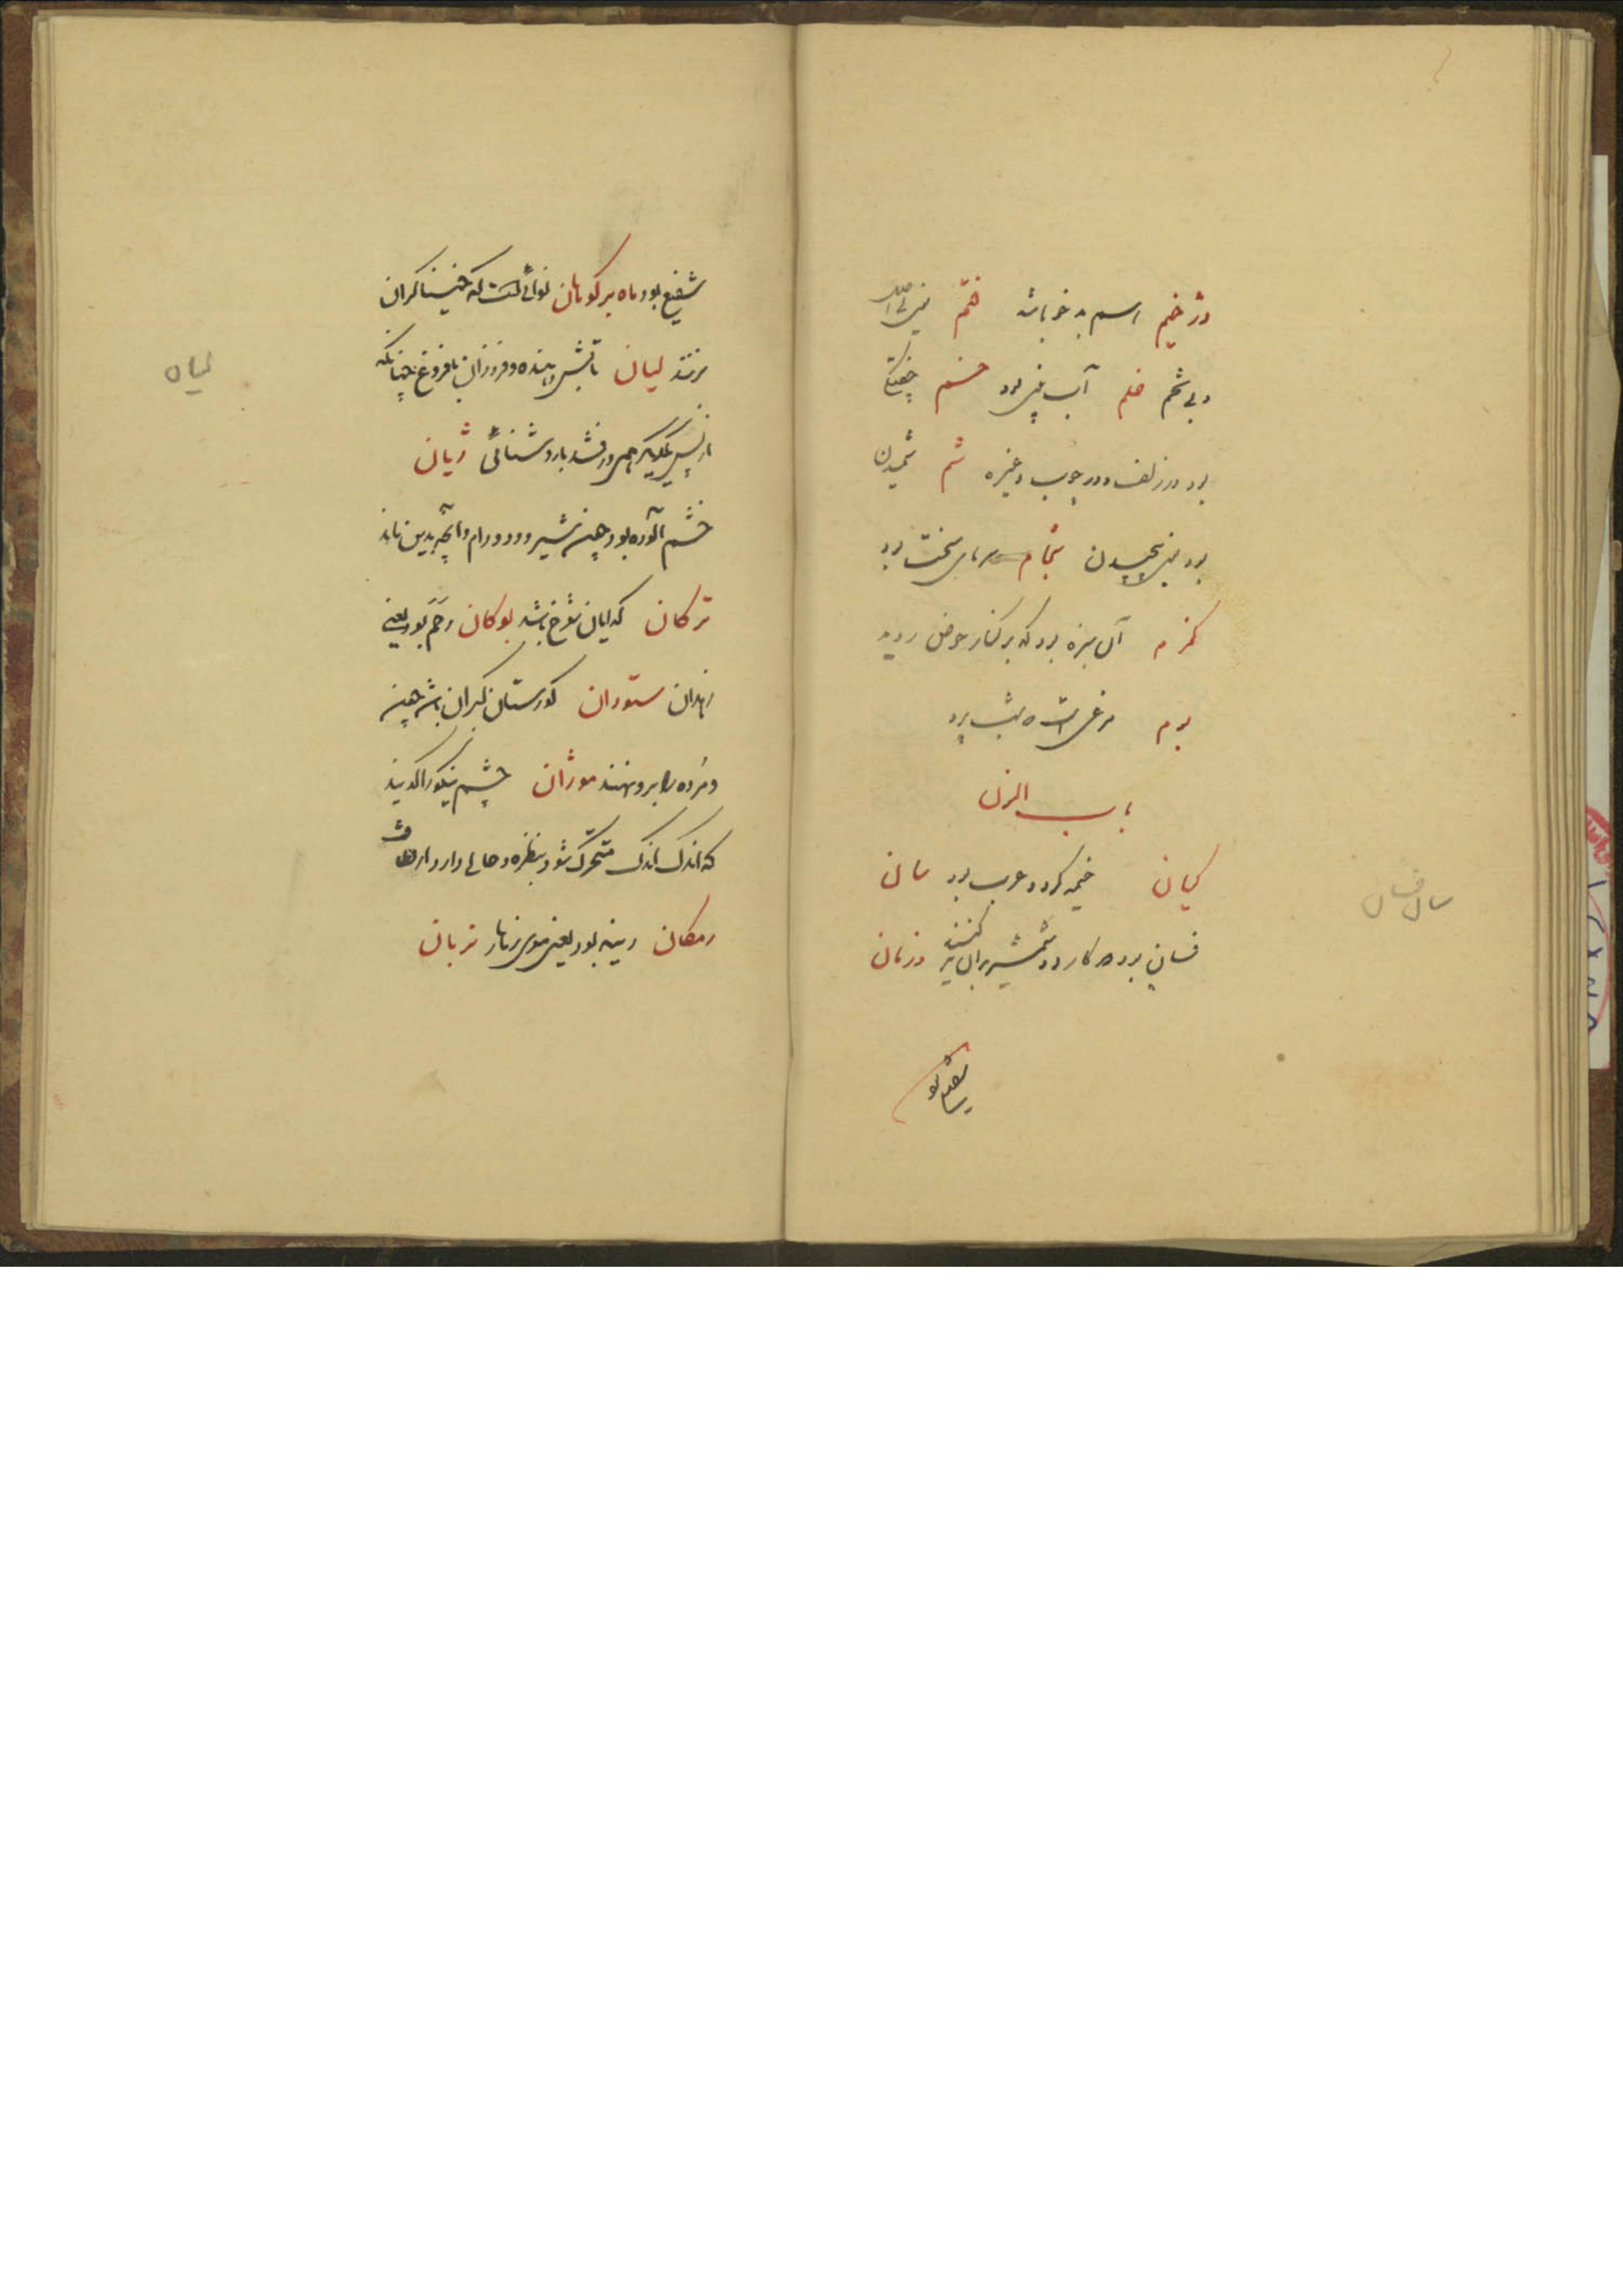 دژخیم اسم بد خو باشد
خلم آب بینی بود خشم
بود در زلف و در چوب و غیره شم شمیدن
بود یعنی رمیدن بنجام سرمای سخت بود
کزم آن سبزه بود که بر کنار حوض روید
بوم
باب النون
کیان خیمه کرد و عرب بود سان
فسان بود که کارد و شمشیر بدان تیز کنند وزنان
سان فسان
شفیع بود
شفیع بود ماه بر کوهان نوائی است که خنیاگران
زنند لیان تابش دهنده و فروزان با فروغ چنانکه
لیان
از پس یکدیگر همی درفشد با روشنائی ژیان
خشم آلوده بود چون شیر و دد و دام و آنچه بدین ماند
ترکان گدایان شوخ باشد بوکان رحم بود یعنی
زهدان ستودان گورستان گبران باشد چون
مرده را برو نهند موژان چشم نیکو را گویند
که اندک اندک متحرک شود بنظره و حالی دارد
رمکان رینه بود یعنی موی زهار نربان